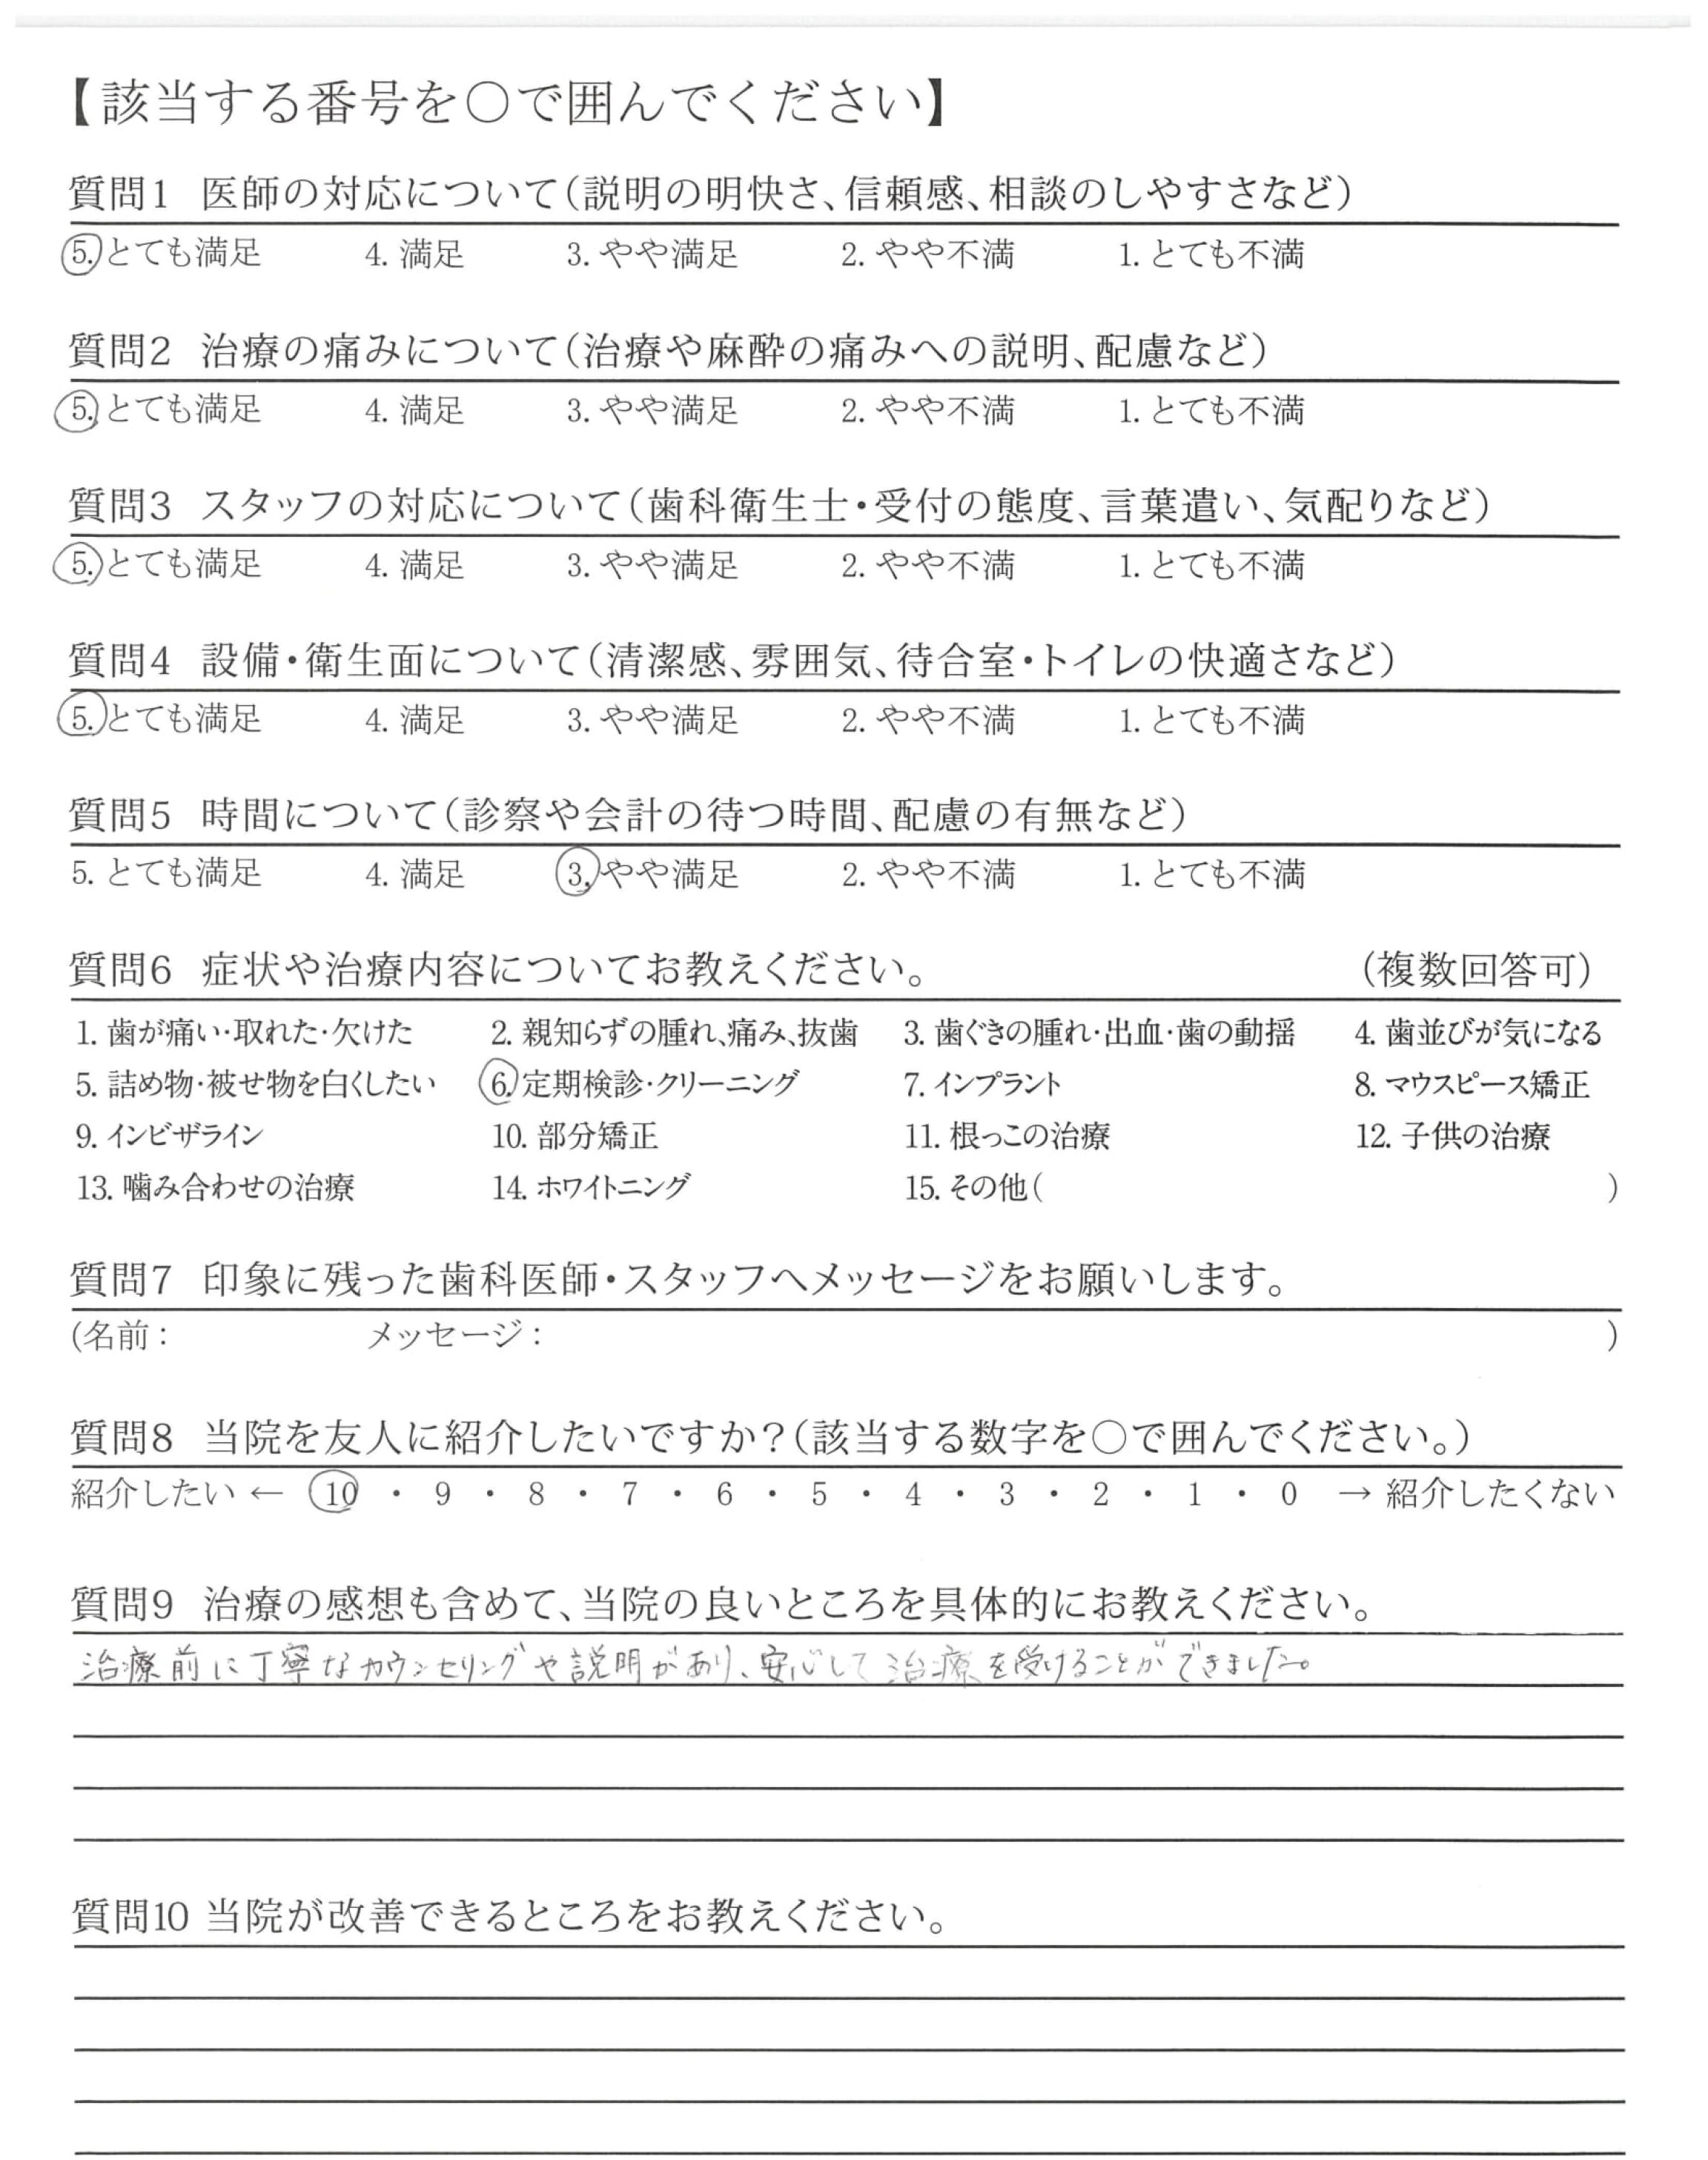 【該当する番号を○で囲んでください】
質問1 医師の対応について(説明の明快さ、信頼感、相談のしやすさなど)
5. とても満足 4. 満足 3. やや満足 2. やや不満 1. とても不満
質問2 治療の痛みについて(治療や麻酔の痛みへの説明、配慮など)
5. とても満足 4. 満足 3. やや満足 2. やや不満 1. とても不満
質問3 スタッフの対応について(歯科衛生士・受付の態度、言葉遣い、気配りなど)
5. とても満足 4. 満足 3. やや満足 2. やや不満 1. とても不満
質問4 設備・衛生面について(清潔感、雰囲気、待合室・トイレの快適さなど)
5. とても満足 4. 満足 3. やや満足 2. やや不満 1. とても不満
質問5 時間について(診察や会計の待つ時間、配慮の有無など)
5. とても満足 4. 満足 3. やや満足 2. やや不満 1. とても不満
質問6 症状や治療内容についてお教えください。 (複数回答可)
1. 歯が痛い・取れた・欠けた 2. 親知らずの腫れ、痛み、抜歯 3. 歯ぐきの腫れ・出血・歯の動揺 4. 歯並びが気になる
5. 詰め物・被せ物を白くしたい 6. 定期検診・クリーニング 7. インプラント 8. マウスピース矯正
9. インビザライン 10. 部分矯正 11. 根っこの治療 12. 子供の治療
13. 噛み合わせの治療 14. ホワイトニング 15. その他( )
質問7 印象に残った歯科医師・スタッフへメッセージをお願いします。
(名前: メッセージ: )
質問8 当院を友人に紹介したいですか?(該当する数字を○で囲んでください。)
紹介したい ← 10 ・ 9 ・ 8 ・ 7 ・ 6 ・ 5 ・ 4 ・ 3 ・ 2 ・ 1 ・ 0 → 紹介したくない
質問9 治療の感想も含めて、当院の良いところを具体的にお教えください。
治療前に丁寧なカウンセリングや説明があり、安心して治療を受けることができました。
質問10 当院が改善できるところをお教えください。